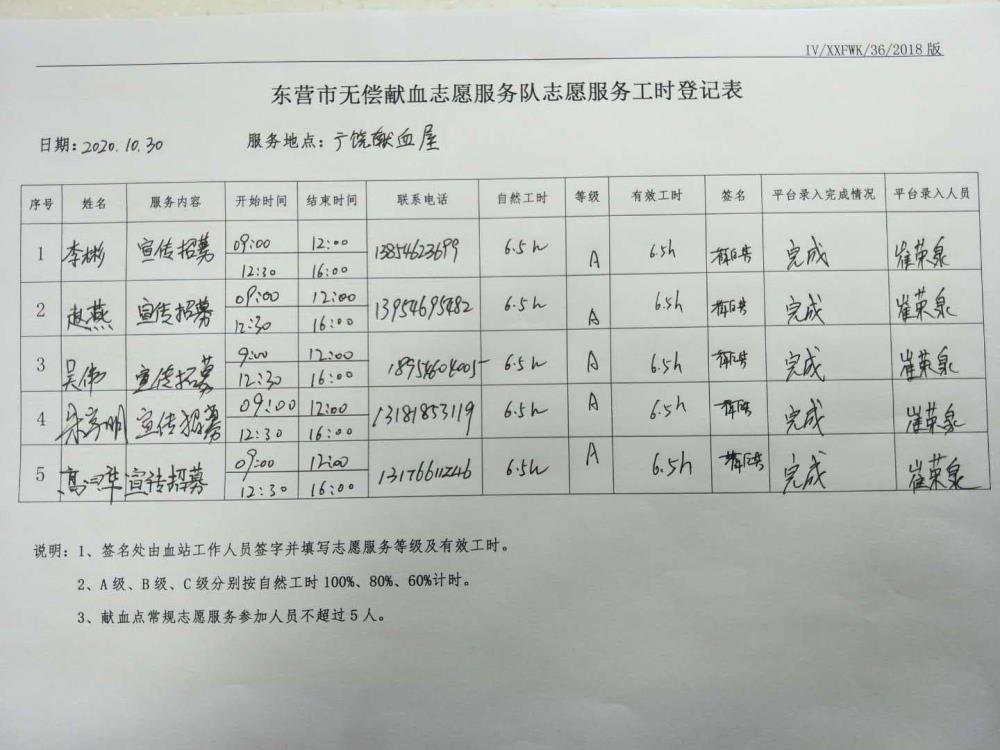 IV/XXFWK/36/2018版
东营市无偿献血志愿服务队志愿服务工时登记表
日期:2020.10.30 服务地点:广饶献血屋
序号 姓名 服务内容 开始时间 结束时间 联系电话 自然工时 等级 有效工时 签名 平台录入完成情况 平台录入人员
1 李彬 宣传招募 09:00 12:00 13854623699 6.5h A 6.5h 完成 崔荣泉
12:30 16:00
2 赵燕 宣传招募 09:00 12:00 13954695482 6.5h A 6.5h 完成 崔荣泉
12:30 16:00
3 吴伟 宣传招募 9:00 12:00 18954604005 6.5h A 6.5h 完成 崔荣泉
12:30 16:00
4 宣传招募 09:00 12:00 13181853119 6.5h A 6.5h 完成 崔荣泉
12:30 16:00
5 宣传招募 09:00 12:00 13176611246 6.5h A 6.5h 完成 崔荣泉
12:30 16:00
说明:1、签名处由血站工作人员签字并填写志愿服务等级及有效工时。
2、A级、B级、C级分别按自然工时100%、80%、60%计时。
3、献血点常规志愿服务参加人员不超过5人。